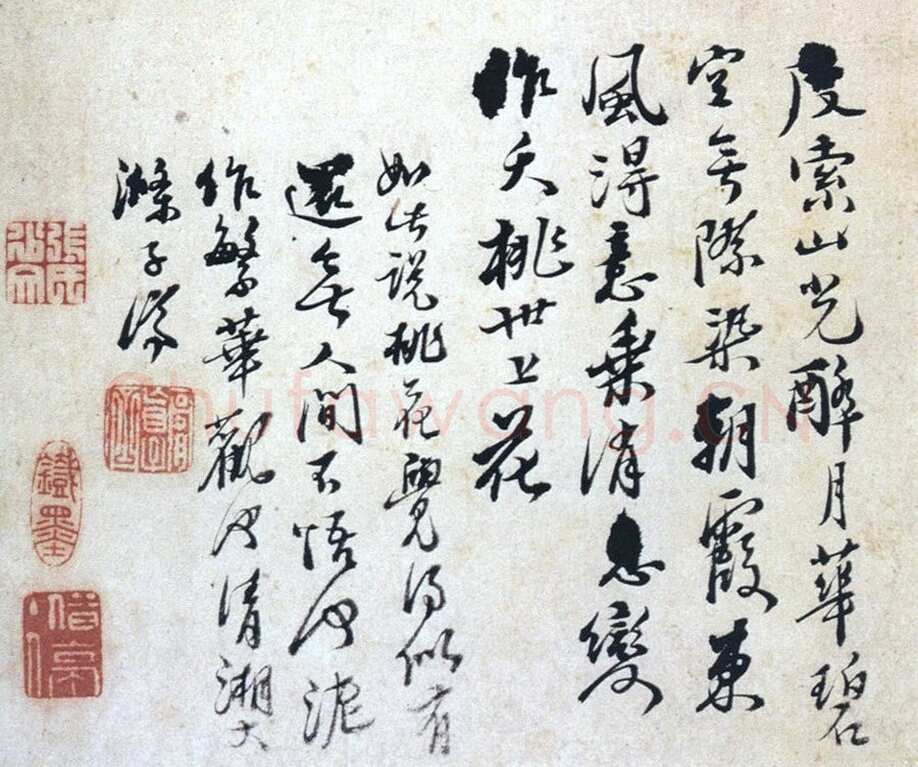 度索山光醉月華碧
空無際染朝霞東
風得意乘消息變
作夭桃世上花
如此說桃花覺得似有
還無人間不悟何泥
作繁華觀也清湘大
滌子濟
鐵墨
借亭
shufawang.CN